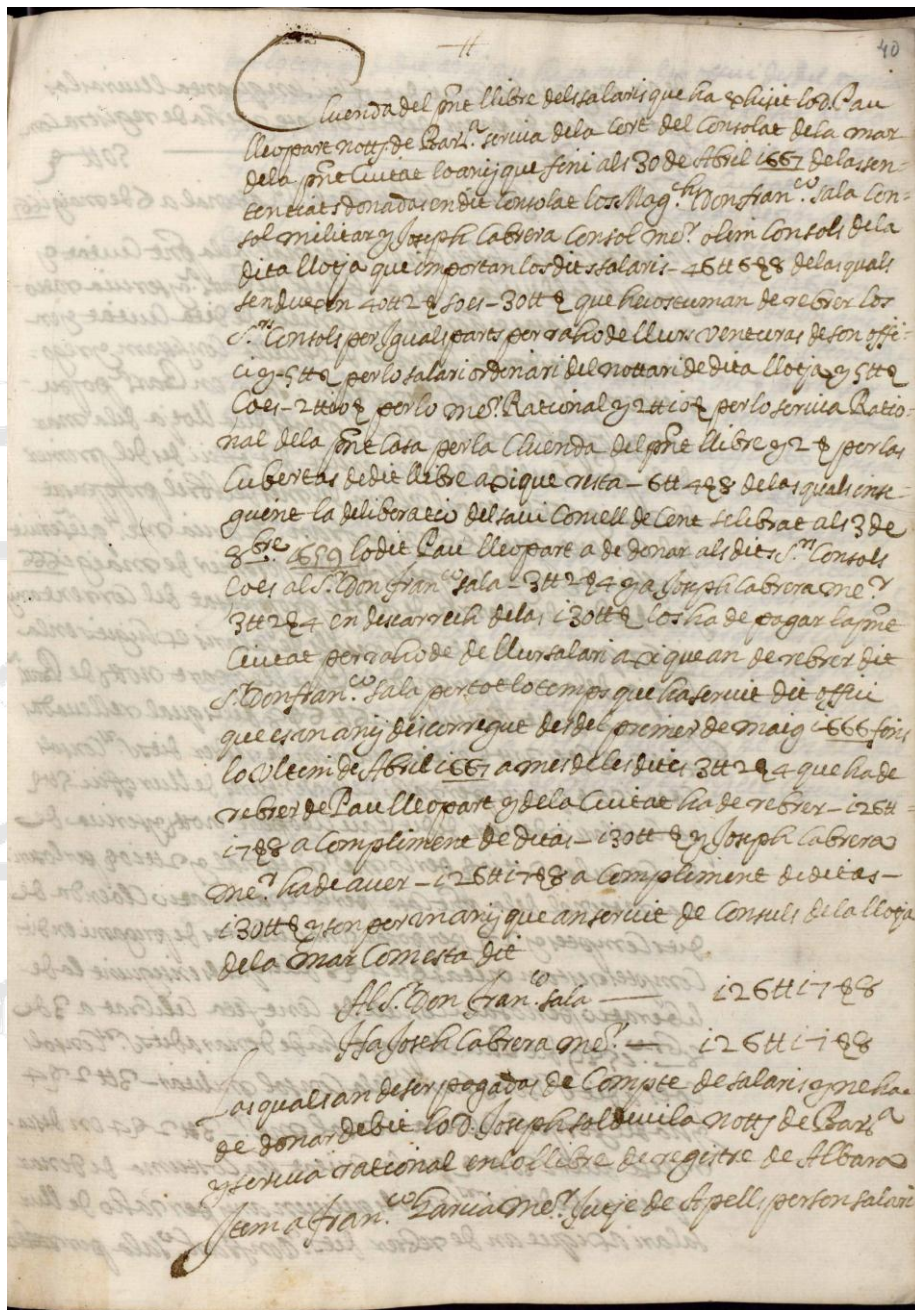 40
Cluenda del pñt llibre dels salaris que ha exhisit lo d. Pau
lleopart nottj de Barᵃ scriva dela Cort del Consolat dela mar
dela pñt Ciutat lo anij que finí als 30 de Abril 1667 de las sen-
tentias donadas en dit Consolat los Magᶜʰˢ Don franᶜᵒ sala Con-
sol militar y Joseph Cabrera Consol meʳ. olim Consols de la
dita llotja que importan los dits salaris - 46 ₶ 6 ß 8 de las quals
sen duexen 40 ₶ 2 ß so es - 30 ₶ ß que acostuman de rebrer los
Sʳˢ Consols per Iguals parts per raho de llurs venturas de son offi-
ci y - 5 ₶ ß per lo salari ordinari del nottari de dita llotja y 5 ₶ ß
Coes - 2 ₶ 10 ß per lo meʳ. Rational y 2 ₶ 10 ß per lo scriva Ratio-
nal dela pñt Casa per la Cluenda del pñt llibre y 2 ß per las
Cubertas de dit llibre axique resta - 6 ₶ 4 ß 8 de las quals inse-
guint la deliberatio del savi Consell de Cent selebrat als 3 de
8bʳᵉ 1659 lo dit Pau lleopart a de donar als dits Sʳˢ Consols
Coes al Sʳ. Don franᶜᵒ sala - 3 ₶ 2 ß 4 y a Joseph Cabrera meʳ
3 ₶ 2 ß 4 en descarrech de las 130 ₶ ß los ha de pagar la pñt
Ciutat per raho de de llur salari axique an de rebrer dit
Sʳ. Don franᶜᵒ sala per tot lo temps que ha servit dit offici
que es un anij discorregut des del primer de maig 1666 fins
lo ultim de Abril 1667 a mes de les dites 3 ₶ 2 ß 4 que ha de
rebrer de Pau lleopart y dela Ciutat ha de rebrer - 126 ₶
17 ß 8 a Compliment de ditas - 130 ₶ ß y Joseph Cabrera
meʳ. ha de aver - 126 ₶ 17 ß 8 a Compliment de ditas -
130 ₶ ß y son per un anij que an servit de Consuls dela llotja
dela mar Com esta dit
Al Sʳ. Don franᶜᵒ. sala — 126 ₶ 17 ß 8
Ha Joseh Cabrera meʳ. — 126 ₶ 17 ß 8
Las quals an de ser pagadas de Compte de salaris y ne ha
de donar debit lo d. Joseph soldevila nottj de Barᵃ
y scriva rational en lo llibre de registre de Albara
Item a franᶜᵒ Garcia meʳ. Jutje de Apells per son salari